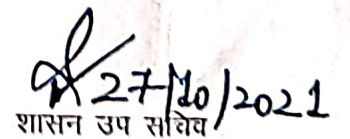 27/10/2021
शासन उप सचिव